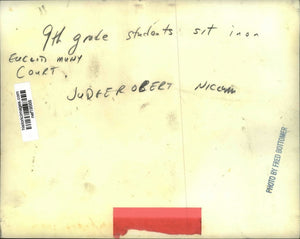 9th grade students sit in on
EUCLID MUNY
COURT.
JUDGE ROBERT
PHOTO BY FRED BOTTOMER